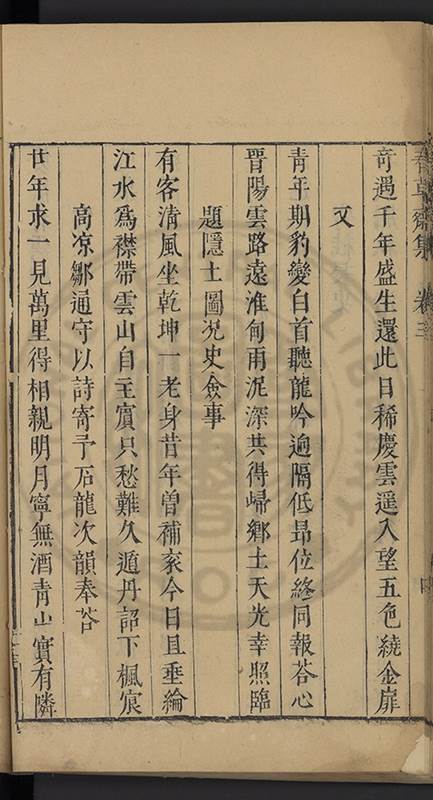 春草齋集 卷三
奇遇千年盛生還此日稀慶雲遥入望五色繞金扉
又
青年期豹變白首聽龍吟逈隔低昂位終同報荅心
晋陽雲路遠淮甸雨泥深共得歸鄉土天光幸照臨
題隱士圖况史僉事
有客清風坐乾坤一老身昔年曾補衮今日且垂綸
江水爲襟帶雲山自主賓只愁難久遁丹詔下楓宸
高凉鄒通守以詩寄予石龍次韻奉荅
廿年求一見萬里得相親明月寧無酒青山實有隣